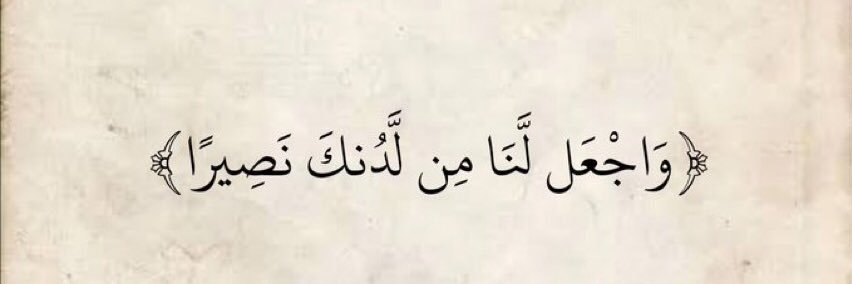 ﴿وَاجْعَل لَّنَا مِن لَّدُنكَ نَصِيرًا﴾